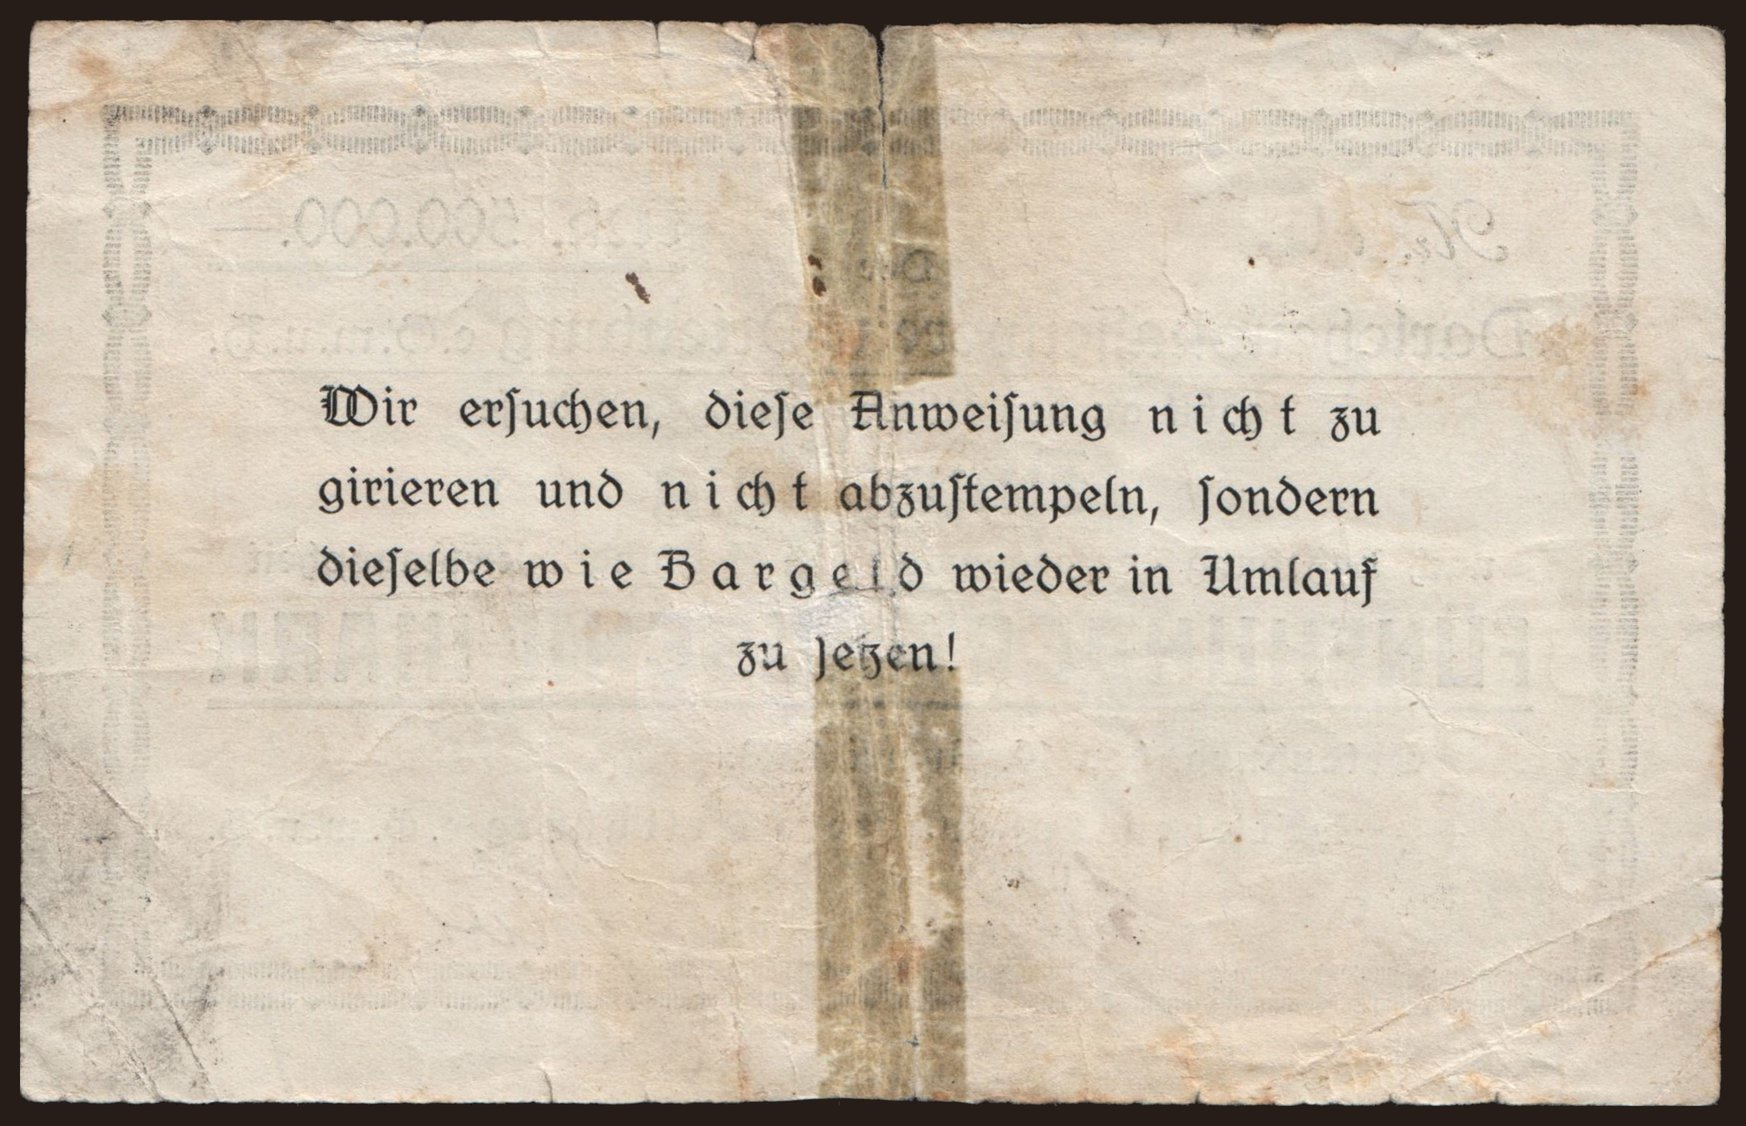 Wir erſuchen, dieſe Anweiſung nicht zu
girieren und nicht abzuſtempeln, ſondern
dieſelbe wie Bargeld wieder in Umlauf
zu ſetzen!